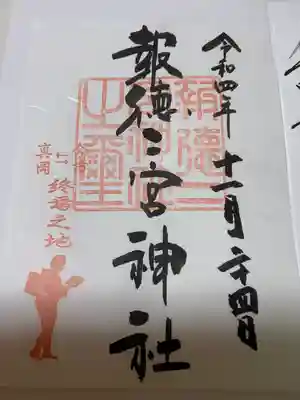 令和四年 十一月二十四日
報徳二宮神社
終焉之地
真岡